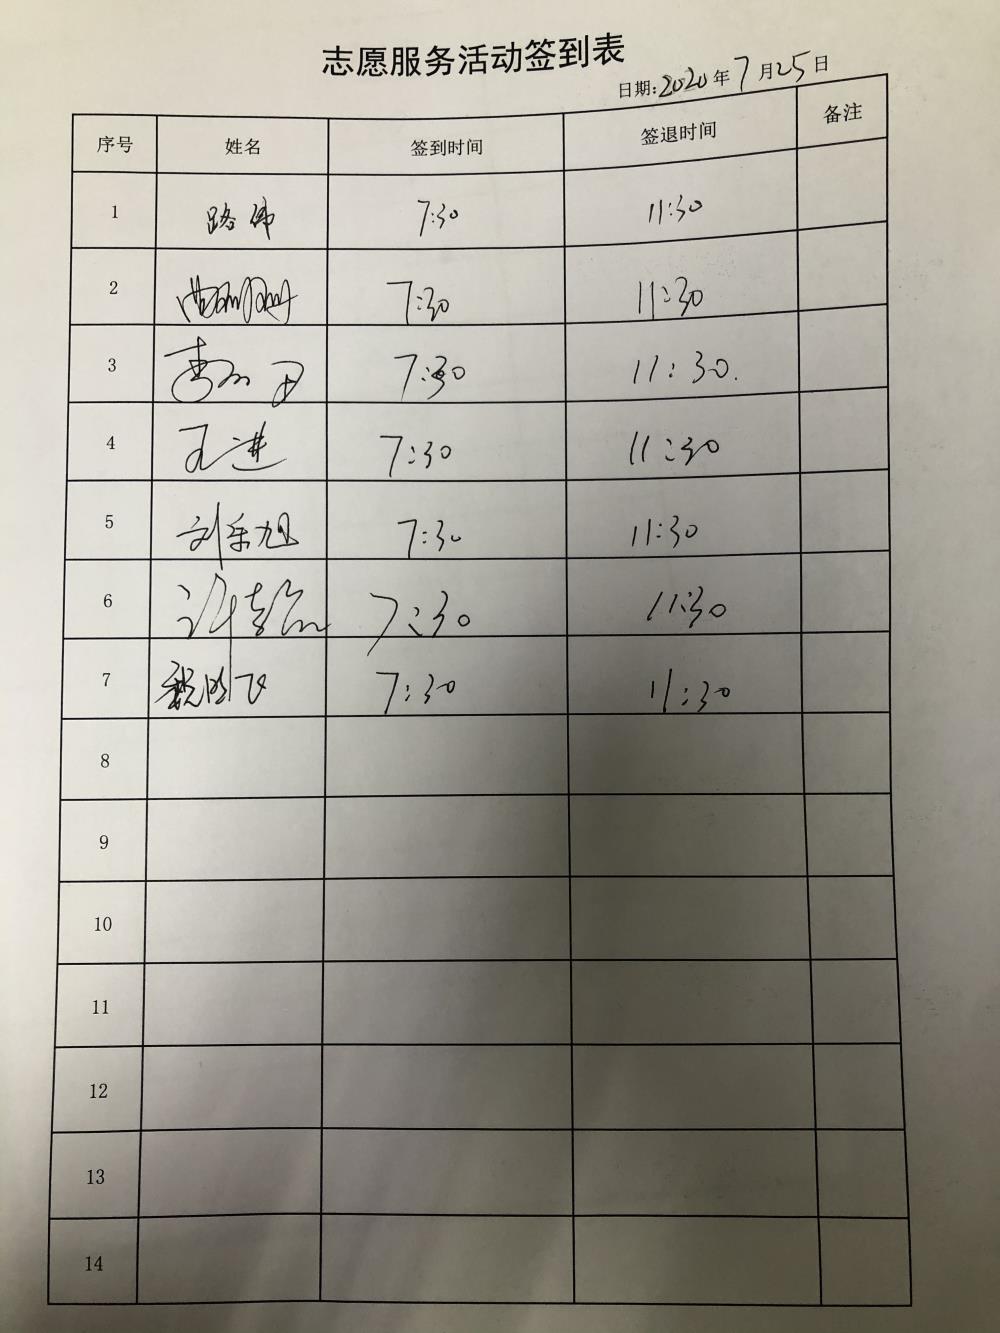 志愿服务活动签到表
日期:2020年7月25日
序号 姓名 签到时间 签退时间 备注
1 路伟 7:30 11:30
2 7:30 11:30
3 7:30 11:30.
4 王进 7:30 11:30
5 刘乐旭 7:30 11:30
6 许 7:30 11:30
7 魏明飞 7:30 11:30
8
9
10
11
12
13
14